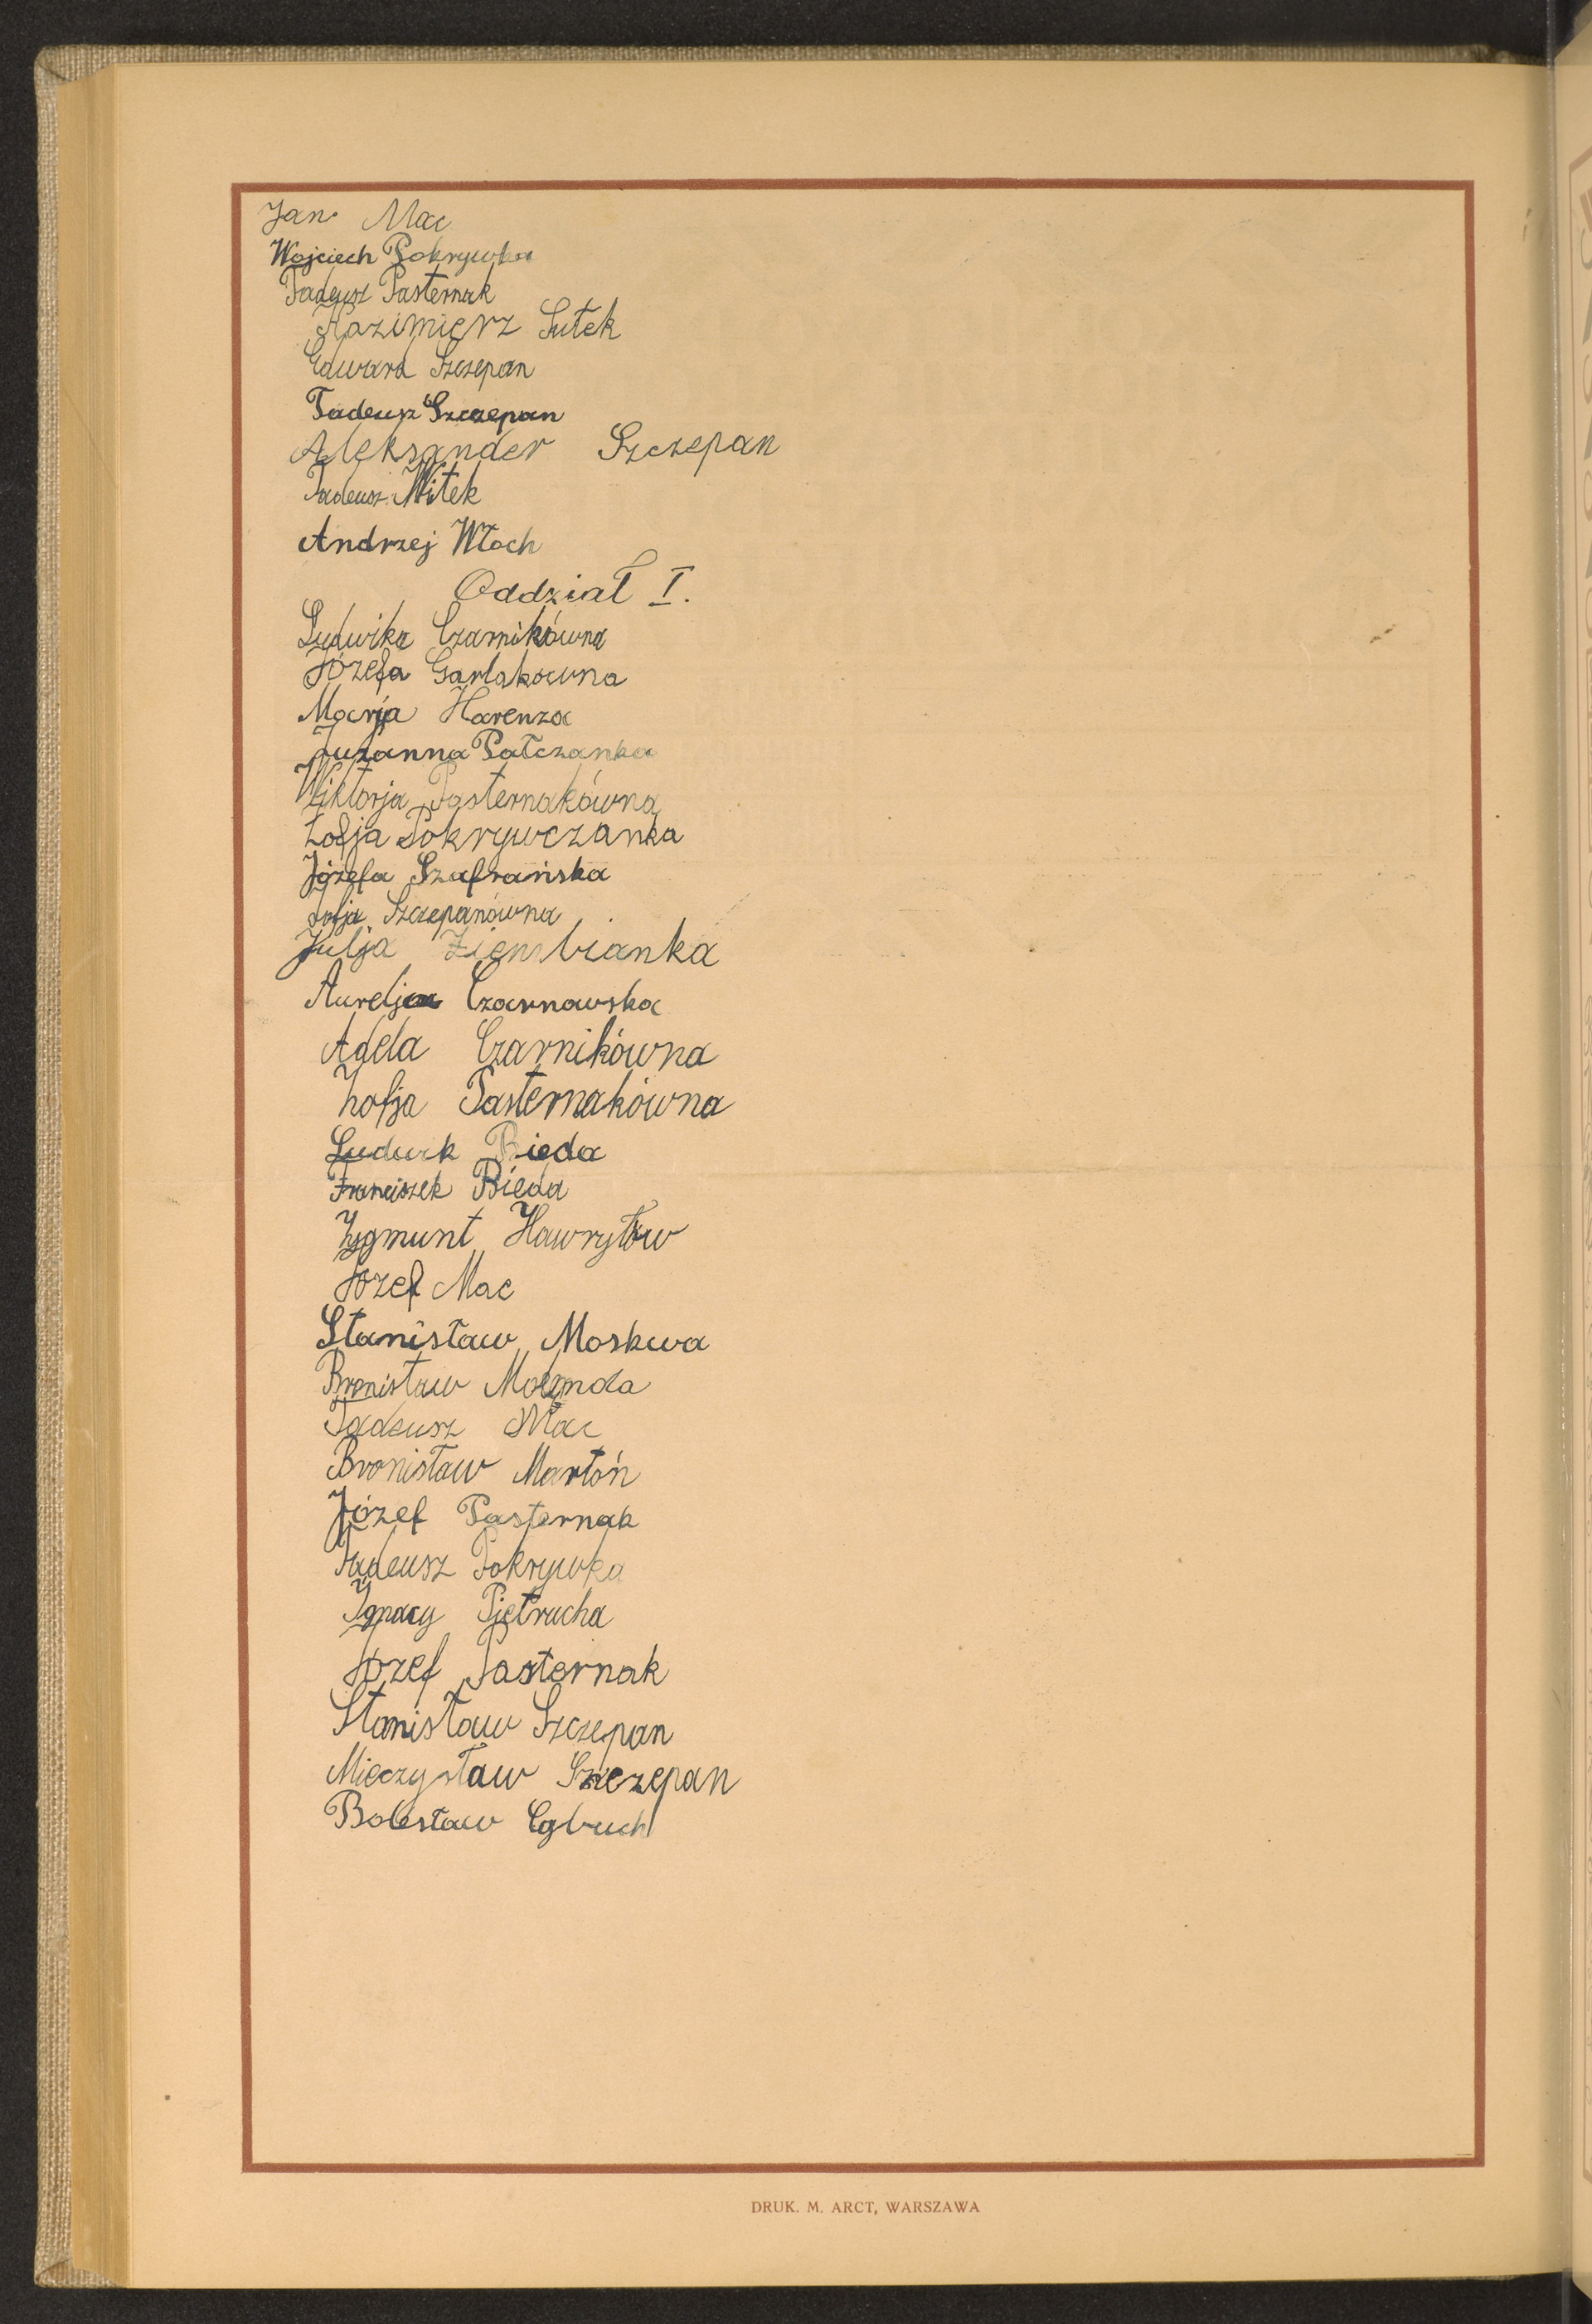 Jan Mac
Wojciech Pokrywka
Tadeusz Pasternak
Kazimierz Sutek
Edward Szczepan
Tadeusz Szczepan
Aleksander Szczepan
Tadeusz Witek
Andrzej Włoch
Oddział I.
Ludwika Czarnikówna
Józefa Garlakówna
Marja Harenza
Zuzanna Pałczanka
Wiktorja Pasternakówna
Zofja Pokrywczanka
Józefa Szafrańska
Zofja Szczepanówna
Julja Ziembianka
Aurelja Czarnawska
Adela Czarnikówna
Zofja Pasternakówna
Ludwik Bieda
Franciszek Bieda
Zygmunt Hawryłów
Józef Mac
Stanisław Moskwa
Bronisław
Tadeusz Mac
Bronisław Martoń
Józef Pasternak
Tadeusz Pokrywka
Ignacy Pietrucha
Józef Pasternak
Stanisław Szczepan
Mieczysław Szczepan
Bolesław
DRUK. M. ARCT, WARSZAWA